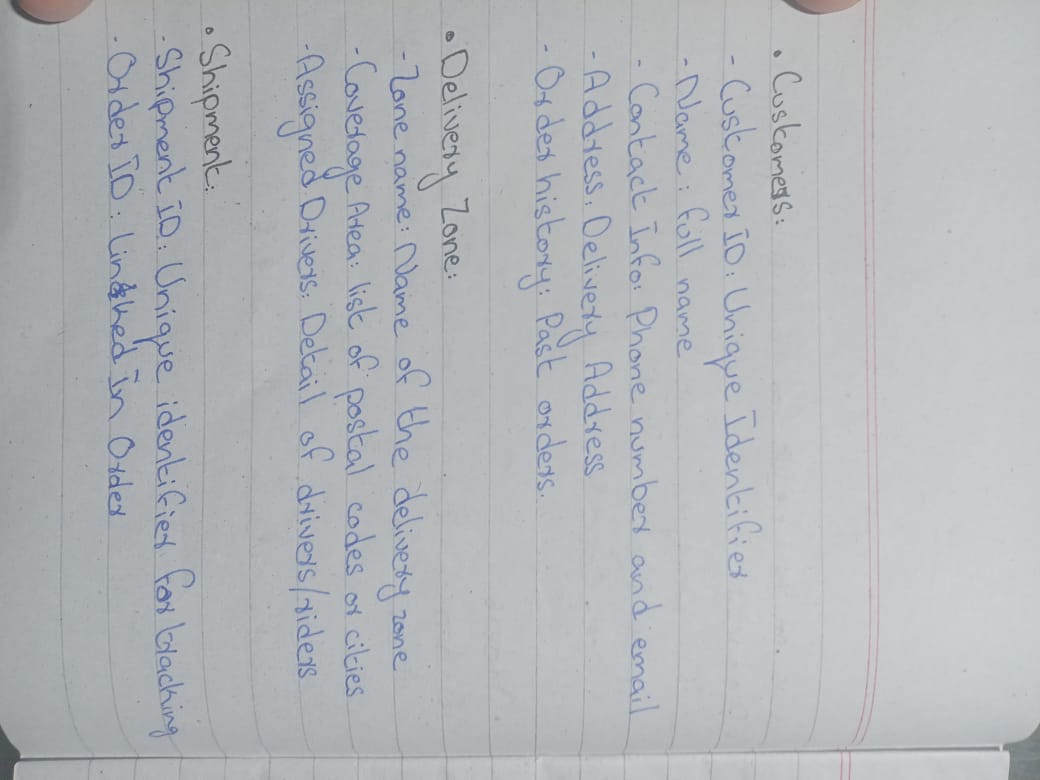 • Customers:
- Customer ID: Unique Identifier
- Name: full name
- Contact Info: Phone number and email
- Address: Delivery Address
- Order history: Past orders.
• Delivery Zone:
- Zone name: Name of the delivery zone
- Coverage Area: list of postal codes or cities
- Assigned Drivers: Detail of drivers/riders
• Shipment:
- Shipment ID: Unique identifier for tracking
- Order ID: linked In Order